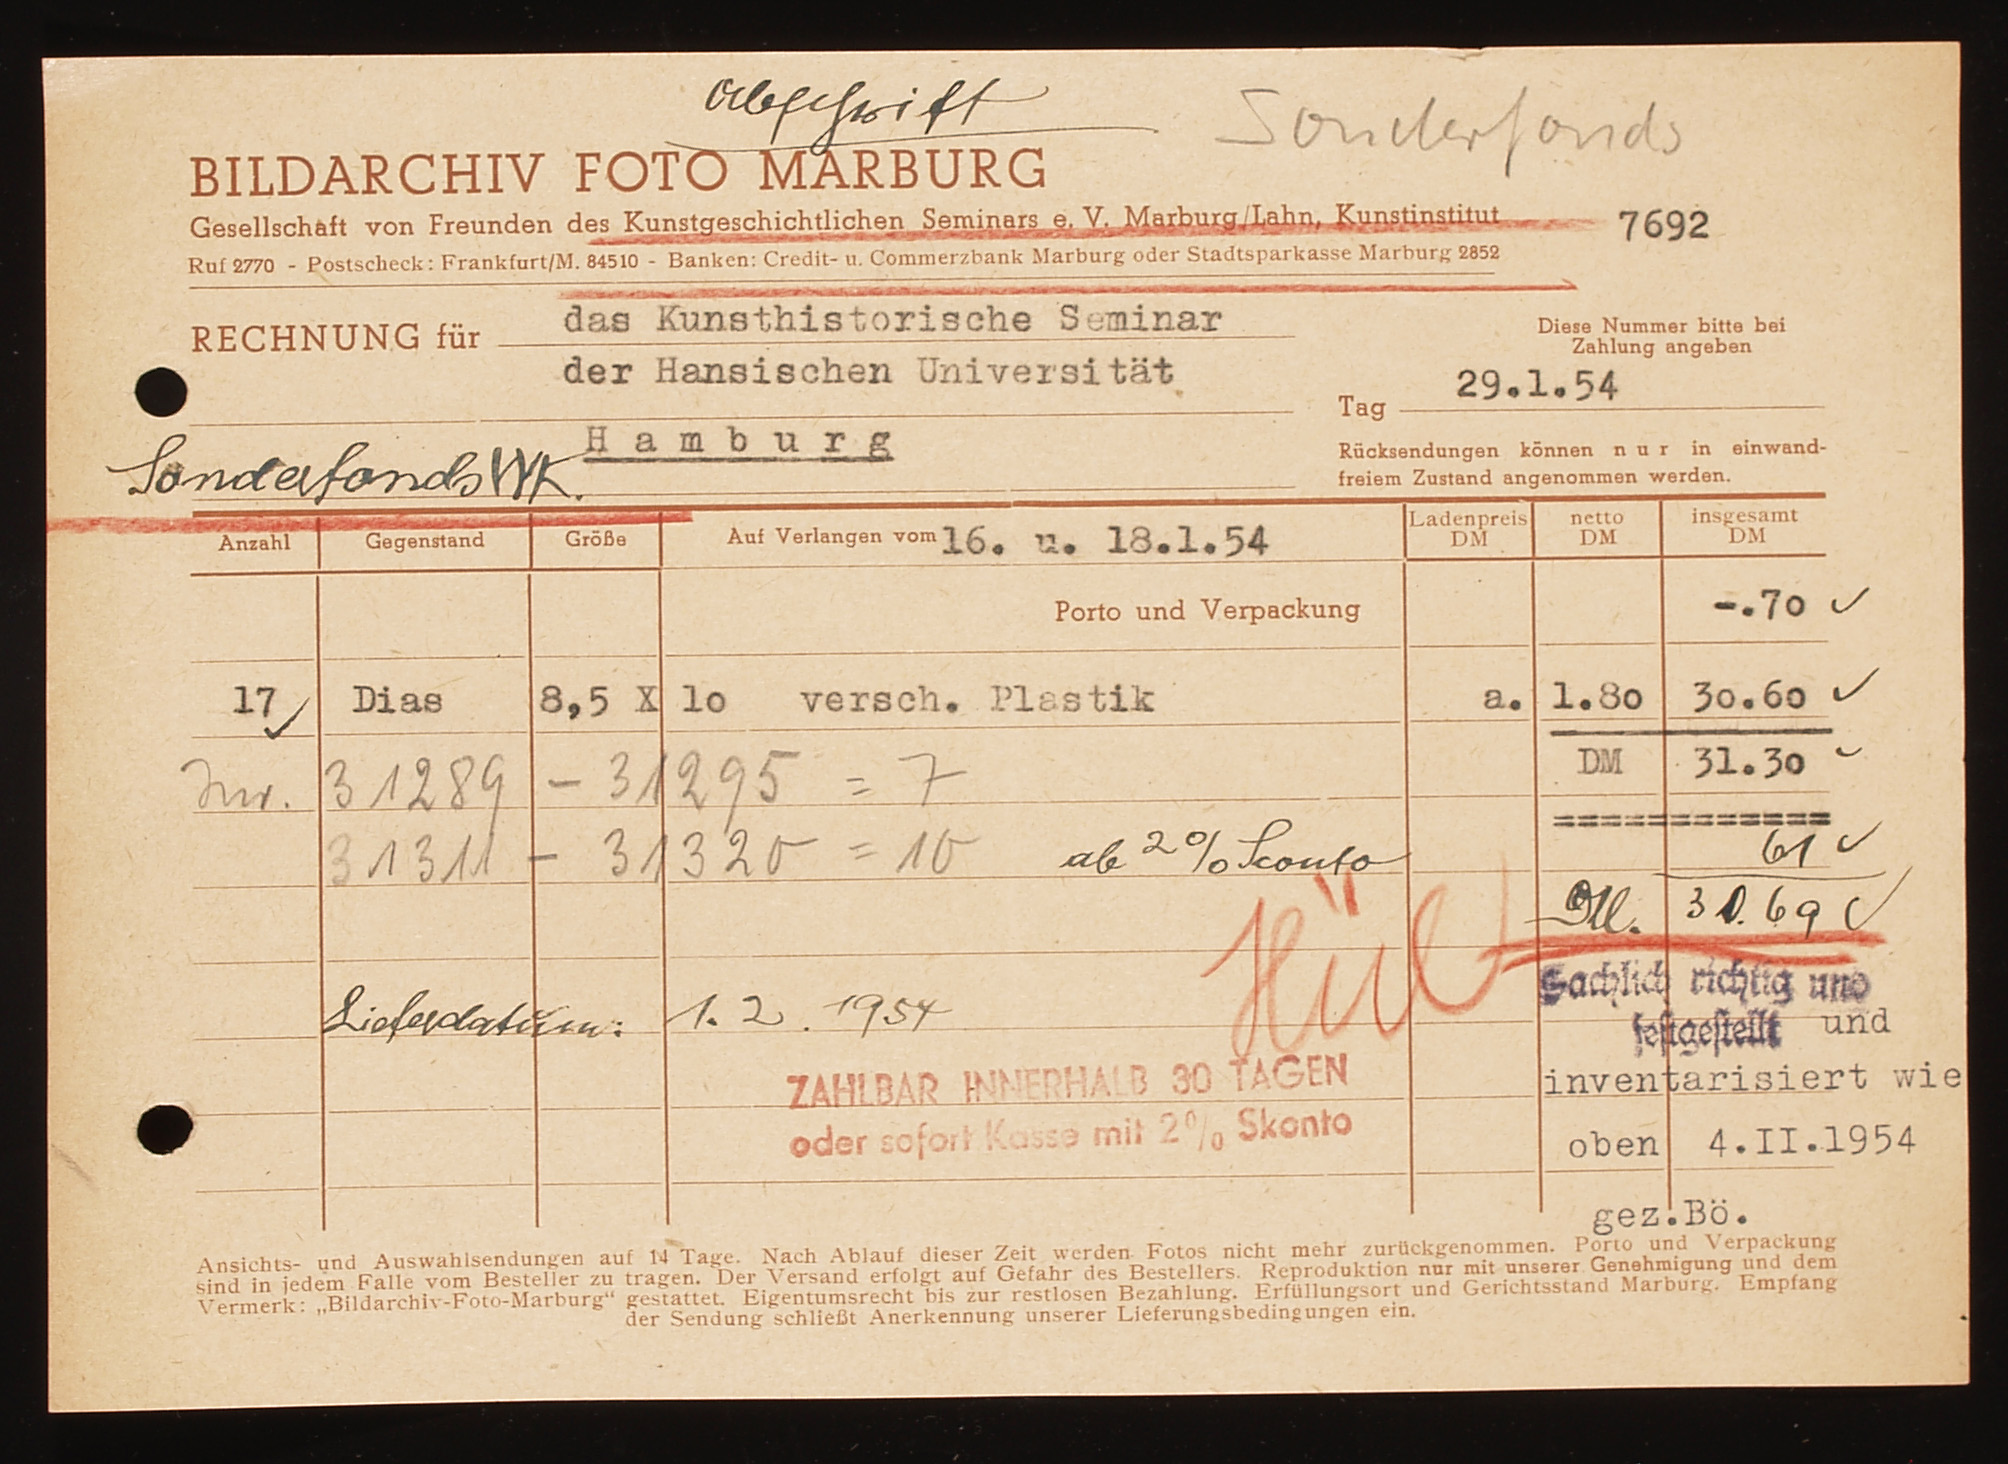 Abschrift
Sonderfonds
BILDARCHIV FOTO MARBURG
Gesellschaft von Freunden des Kunstgeschichtlichen Seminars e. V. Marburg/Lahn, Kunstinstitut
7692
Ruf 2770 - Postscheck: Frankfurt/M. 84510 - Banken: Credit- u. Commerzbank Marburg oder Stadtsparkasse Marburg 2852
RECHNUNG für das Kunsthistorische Seminar
der Hansischen Universität
H a m b u r g
Diese Nummer bitte bei
Zahlung angeben
Tag 29.1.54
Rücksendungen können n u r in einwand-
freiem Zustand angenommen werden.
Sonderfonds WK.
Anzahl Gegenstand Größe Auf Verlangen vom 16. u. 18.1.54 Ladenpreis DM netto DM insgesamt DM
Porto und Verpackung -.70 ✓
17 ✓ Dias 8,5 X 10 versch. Plastik a. 1.80 30.60 ✓
DM 31.30 ✓
============
Inv. 31289 - 31295 = 7
31311 - 31320 = 10 ab 2% Sconto 61 ✓
DM. 30.69 ✓
Lieferdatum: 1. 2. 1954
Sachlich richtig und
festgestellt und
inventarisiert wie
oben 4.II.1954
gez.Bö.
ZAHLBAR INNERHALB 30 TAGEN
oder sofort Kasse mit 2% Skonto
Ansichts- und Auswahlsendungen auf 14 Tage. Nach Ablauf dieser Zeit werden Fotos nicht mehr zurückgenommen. Porto und Verpackung
sind in jedem Falle vom Besteller zu tragen. Der Versand erfolgt auf Gefahr des Bestellers. Reproduktion nur mit unserer Genehmigung und dem
Vermerk: „Bildarchiv-Foto-Marburg“ gestattet. Eigentumsrecht bis zur restlosen Bezahlung. Erfüllungsort und Gerichtsstand Marburg. Empfang
der Sendung schließt Anerkennung unserer Lieferungsbedingungen ein.